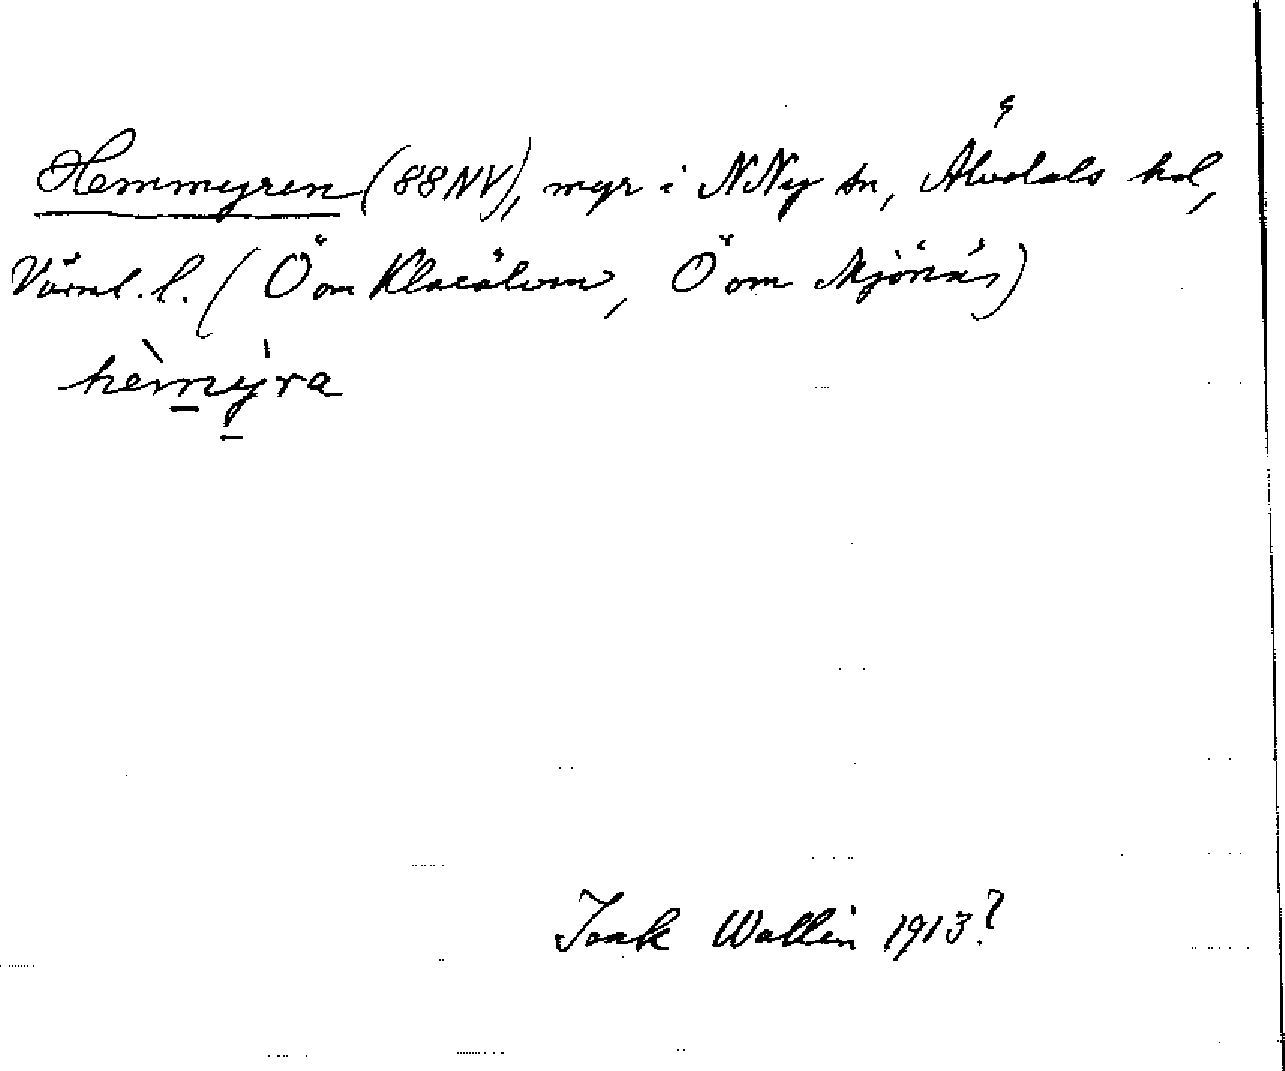 Hemmyren (88NV), myr i NNy sn, Älvdals hd,
Värml. l. (Ö om Klarälven, Ö om Mjönäs)
hèmỳra
Isak Wallin 1913?